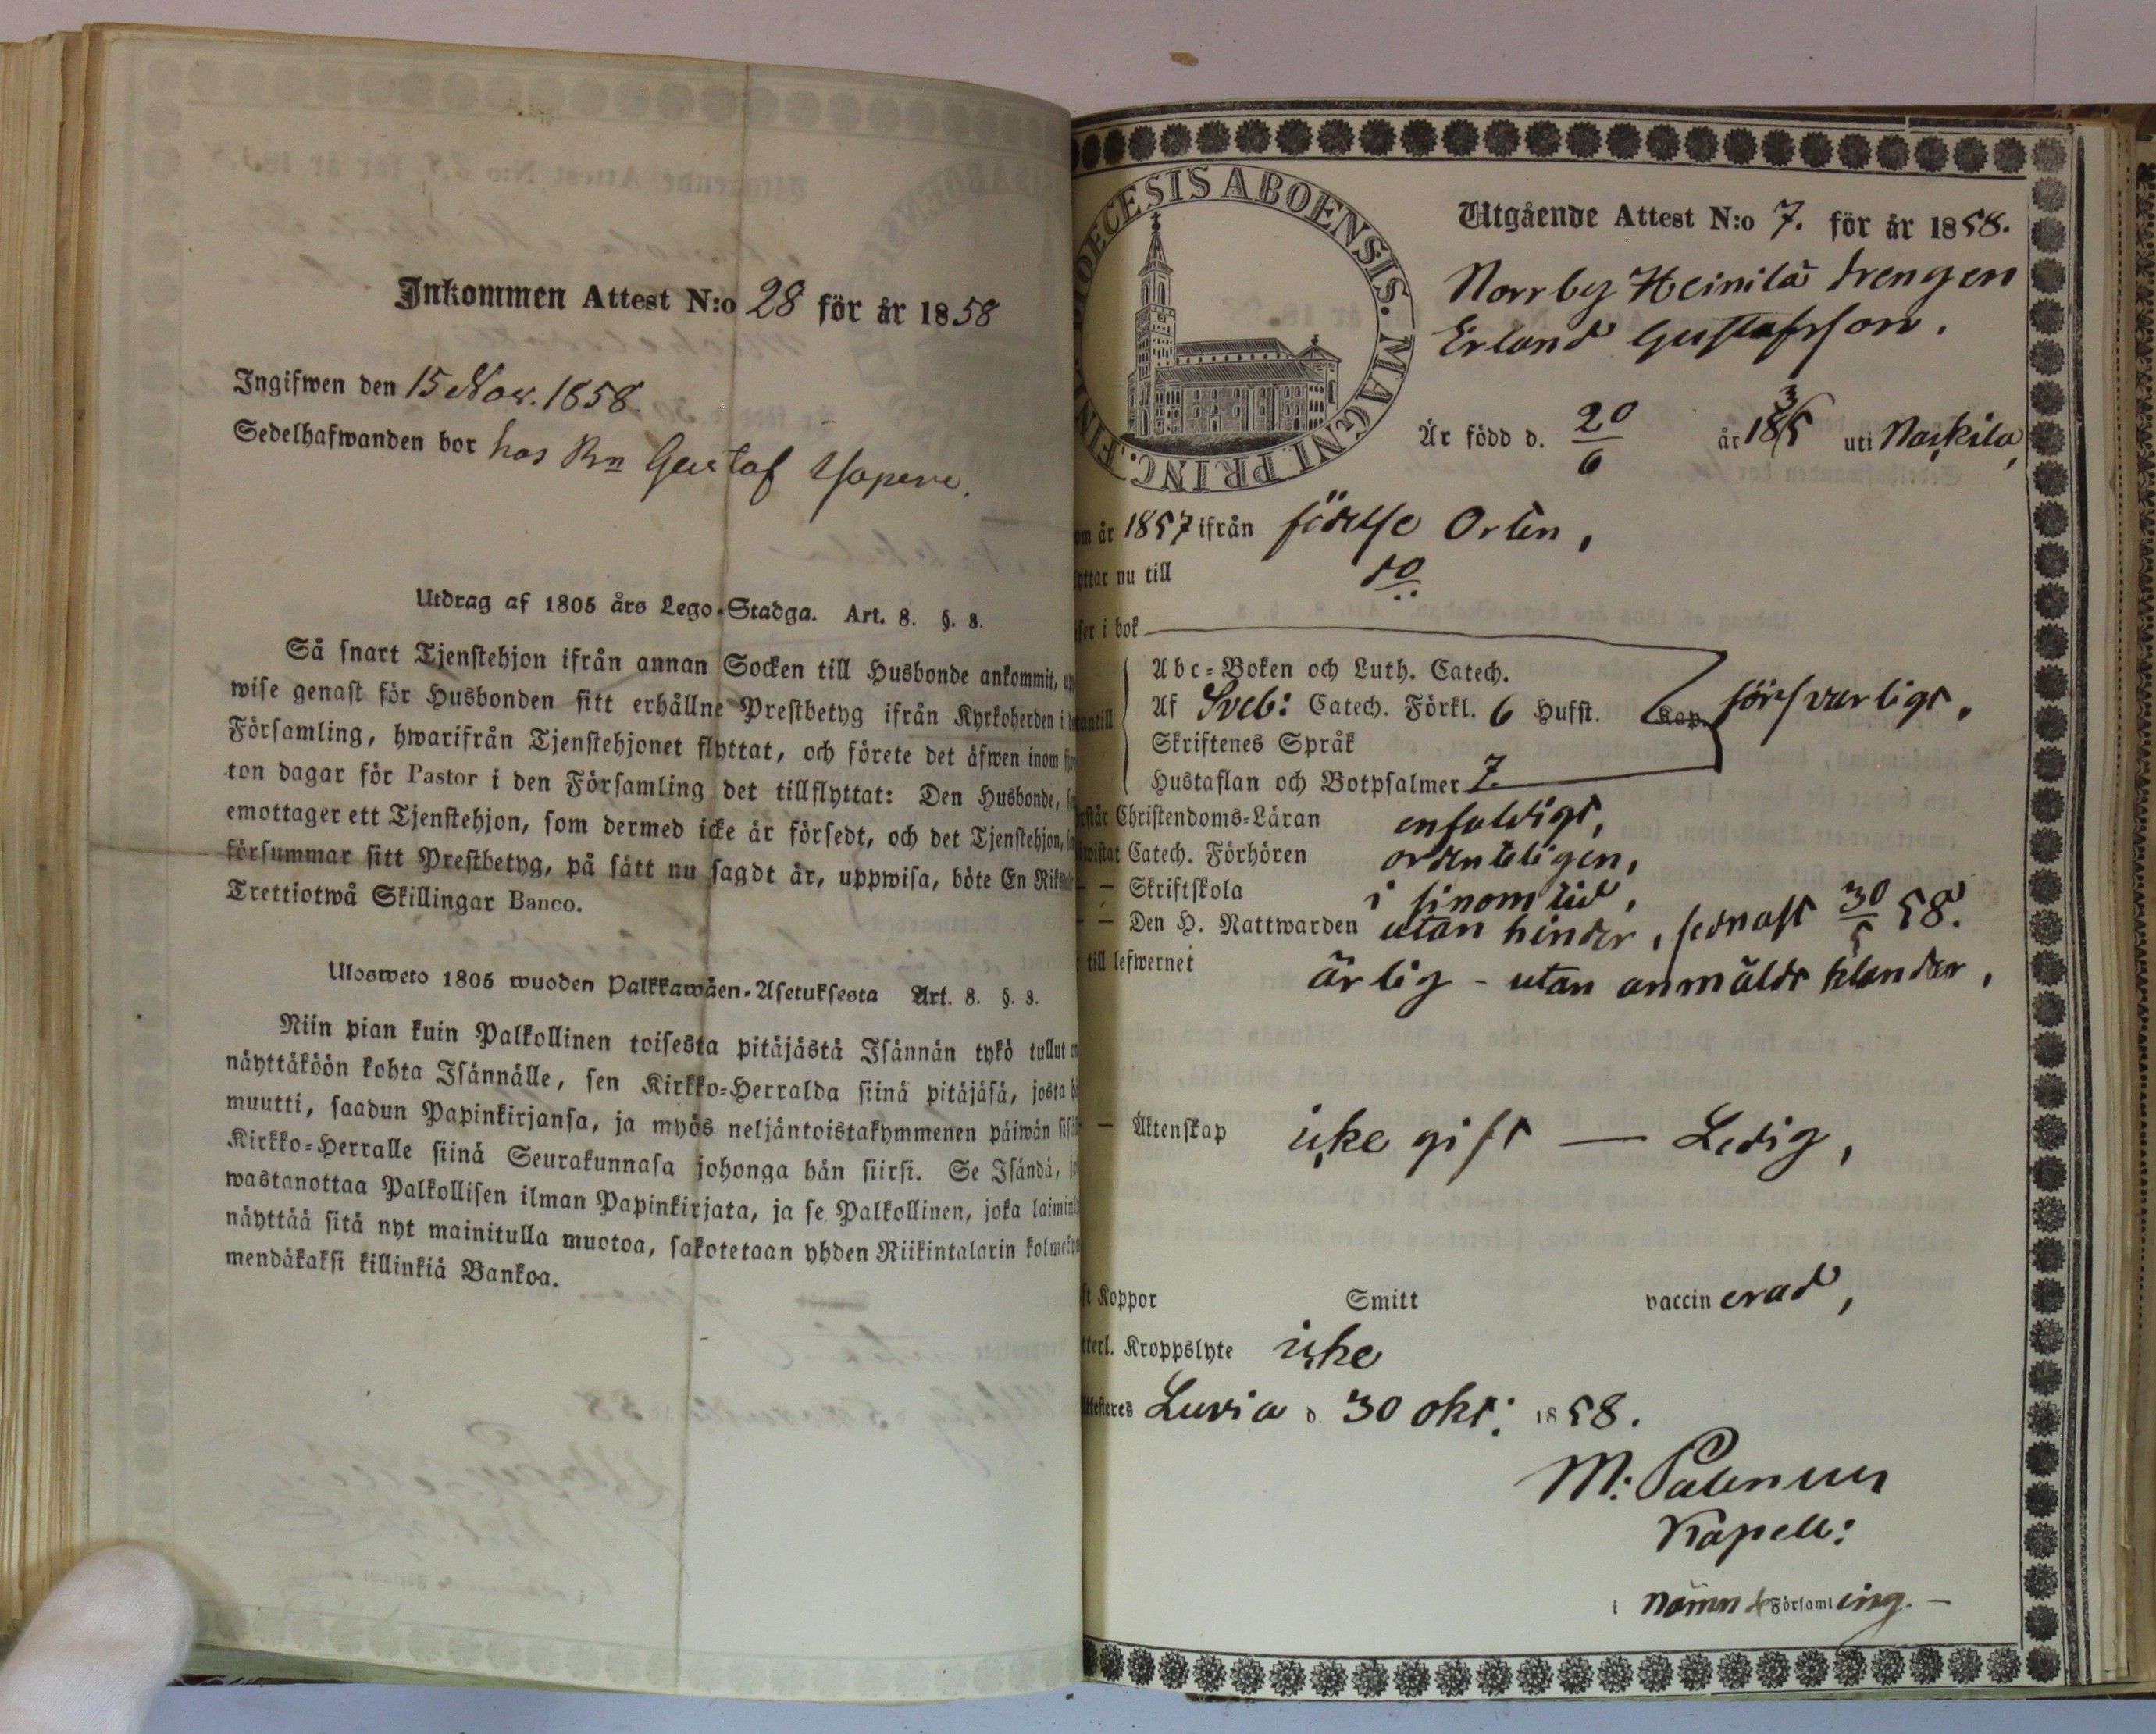 Inkommen Attest N:o 28 för år 1858
Ingifwen den 15 Nov. 1858.
Sedelhafwanden bor hos Bn Gustaf
Utdrag af 1805 års Lego-Stadga. Art. 8. §. 8.
Så snart Tjenstehjon ifrån annan Socken till Husbonde ankommit,
wise genast för Husbonden sitt erhållne Prestbetyg ifrån Kyrkoherden i
Församling, hwarifrån Tjenstehjonet flyttat, och förete det äfwen inom
ton dagar för Pastor i den Församling det tillflyttat: Den Husbonde,
emottager ett Tjenstehjon, som dermed icke är försedt, och det Tjenstehjon,
försummar sitt Prestbetyg, på sätt nu sagdt är, uppwisa, böte En
Trettiotwå Skillingar Banco.
Ulosweto 1805 wuoden Palkkawäen-Asetuksesta Art. 8. §. 8.
Niin pian kuin Palkollinen toisesta pitäjästä Isännän tykö tullut
näyttäköön kohta Isännälle, sen Kirkko-Herralda siinä pitäjäsä, josta
muutti, saadun Papinkirjansa, ja myös neljäntoistakymmenen päiwän
Kirkko-Herralle siinä Seurakunnasa johonga hän siirsi. Se Isändä,
wastanottaa Palkollisen ilman Papinkirjata, ja se Palkollinen, joka
näyttää sitä nyt mainitulla muotoa, sakotetaan yhden Riikintalarin
mendäkaksi killinkiä Bankoa.
DIOECESIS ABOENSIS. MAGNI PRINC. FIN
Utgående Attest N:o 7. för år 1858.
Norrby Heinilä drengen
Erland Gustafsson.
Är född d. 20/6 år 1835 uti Naskila,
om år 1857 ifrån födelse Orten,
yttar nu till do.
ser i bok
Abc-Boken och Luth. Catech.
antill Af Sveb: Catech. Förkl. 6 Hufst. Kap. försvarligt,
Skriftenes Språk
Hustaflan och Botpsalmer 7
Christendoms-Läran enfaldigt,
wistat Catech. Förhören ordenteligen,
— — Skriftskola i sinom tid,
— — Den H. Nattwarden utan hinder, sednast 30/5 58.
till lefwernet ärlig - utan anmäldt klander,
— Äktenskap icke gift — Ledig,
Koppor Smitt vaccinerad,
tterl. Kroppslyte icke
Luvia d. 30 okt: 1858.
M: Palenius
Kapell:
i nämnd Församling. —